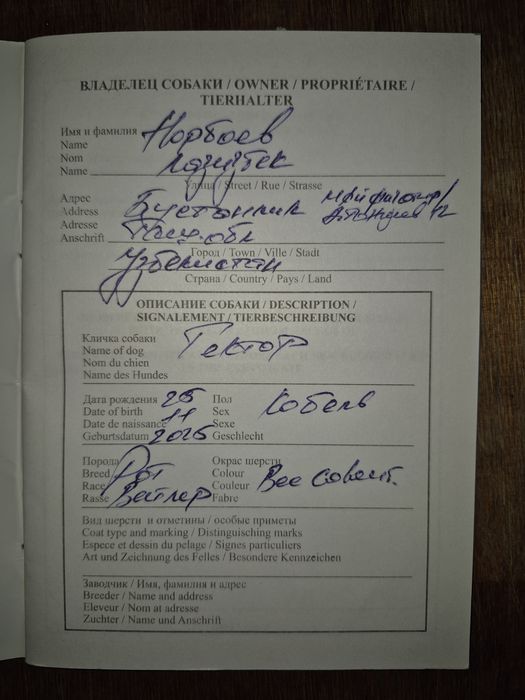 ВЛАДЕЛЕЦ СОБАКИ / OWNER / PROPRIÉTAIRE /
TIERHALTER
Имя и фамилия Норбоев
Name
Nom
Name
Улица / Street / Rue / Strasse
Адрес
Address
Adresse
Anschrift Таш.обл
Город / Town / Ville / Stadt
Узбекистан
Страна / Country / Pays / Land
ОПИСАНИЕ СОБАКИ / DESCRIPTION /
SIGNALEMENT / TIERBESCHREIBUNG
Кличка собаки Гектор
Name of dog
Nom du chien
Name des Hundes
Дата рождения 25 Пол Кобель
Date of birth 11 Sex
Date de naissance Sexe
Geburtsdatum 2025 Geschlecht
Порода Рот Окрас шерсти
Breed Colour
Race Вейлер Couleur
Rasse Fabre
Вид шерсти и отметины / особые приметы
Coat type and marking / Distinguisching marks
Espece et dessin du pelage / Signes particuliers
Art und Zeichnung des Felles / Besondere Kennzeichen
Заводчик / Имя, фамилия и адрес
Breeder / Name and address
Eleveur / Nom at adresse
Zuchter / Name und Anschrift